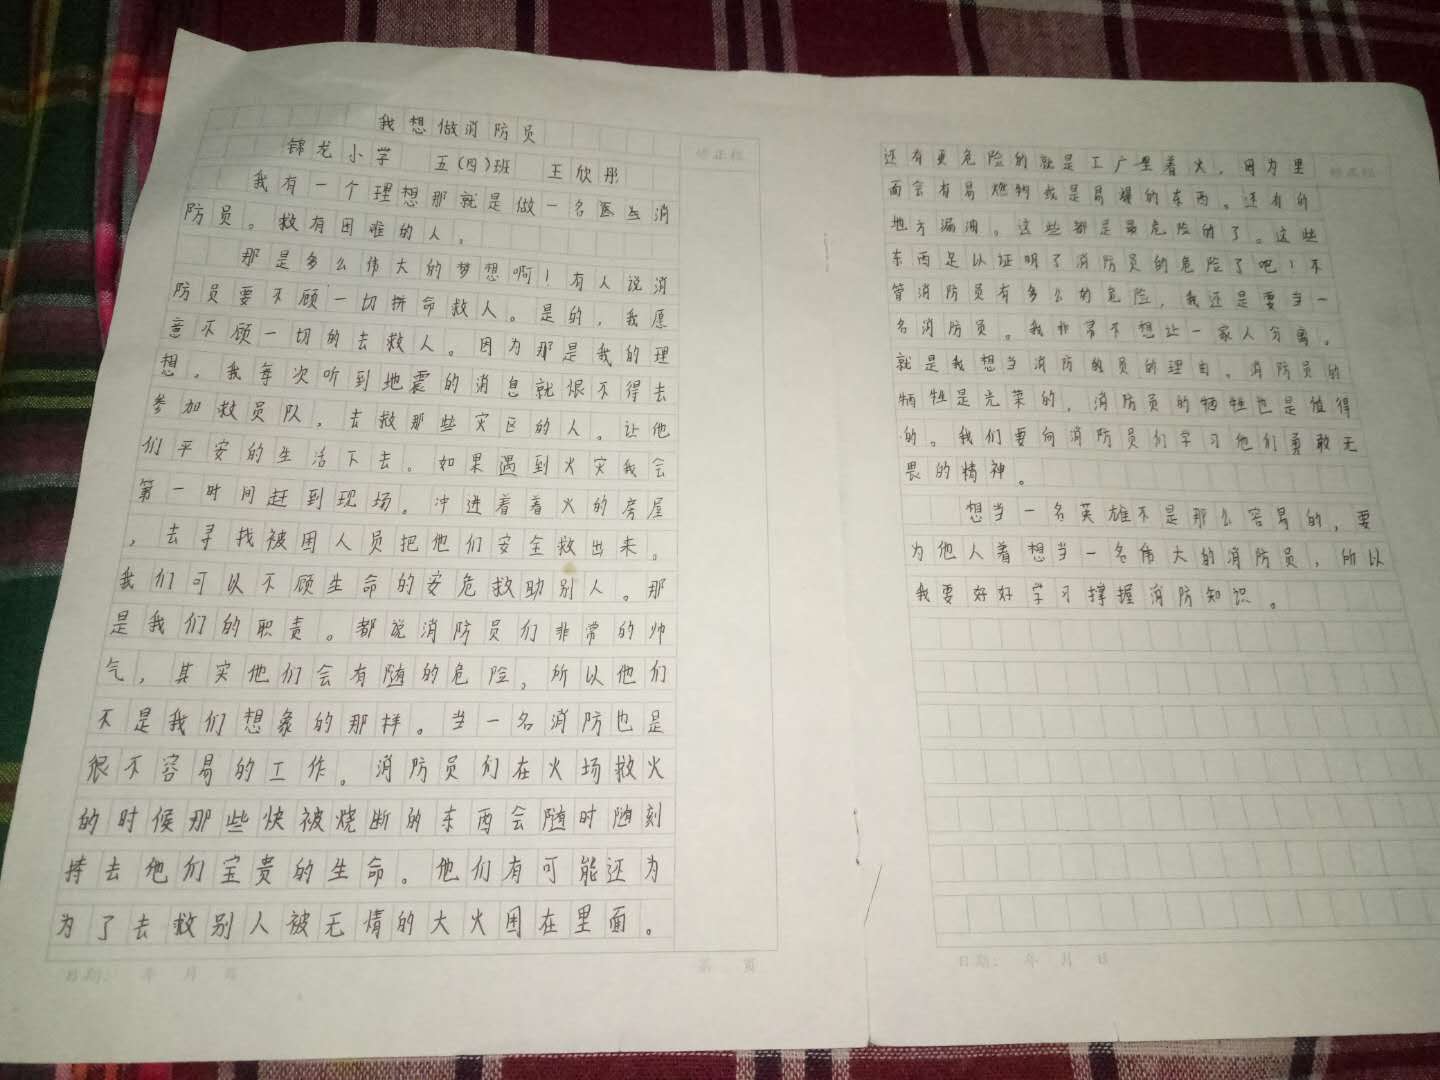 我想做消防员
锦龙小学 五(四)班 王欣彤
我有一个理想那就是做一名医生消
防员。救有困难的人。
那是多么伟大的梦想啊!有人说消
防员要不顾一切拼命救人。是的,我愿
意不顾一切的去救人。因为那是我的理
想。我每次听到地震的消息就恨不得去
参加救员队,去救那些灾区的人。让他
们平安的生活下去。如果遇到火灾我会
第一时间赶到现场。冲进着着火的房屋
,去寻找被困人员把他们安全救出来。
我们可以不顾生命的安危救助别人。那
是我们的职责。都说消防员们非常的帅
气,其实他们会有随的危险,所以他们
不是我们想象的那样。当一名消防也是
很不容易的工作。消防员们在火场救火
的时候那些快被烧断的东西会随时随刻
持去他们宝贵的生命。他们有可能还为
为了去救别人被无情的大火困在里面。
日期: 年 月 日
第 页
修正栏
还有更危险的就是工厂里着火,因为里
面会有易燃物或是易爆的东西。还有的
地方漏油。这些都是最危险的了。这些
东西足以证明了消防员的危险了吧!不
管消防员有多么的危险,我还是要当一
名消防员。我非常不想让一家人分离,
就是我想当消防的员的理由。消防员的
牺牲是光荣的,消防员的牺牲也是值得
的。我们要向消防员们学习他们勇敢无
畏的精神。
想当一名英雄不是那么容易的,要
为他人着想当一名伟大的消防员,所以
我要好好学习撑握消防知识。
日期: 年 月 日